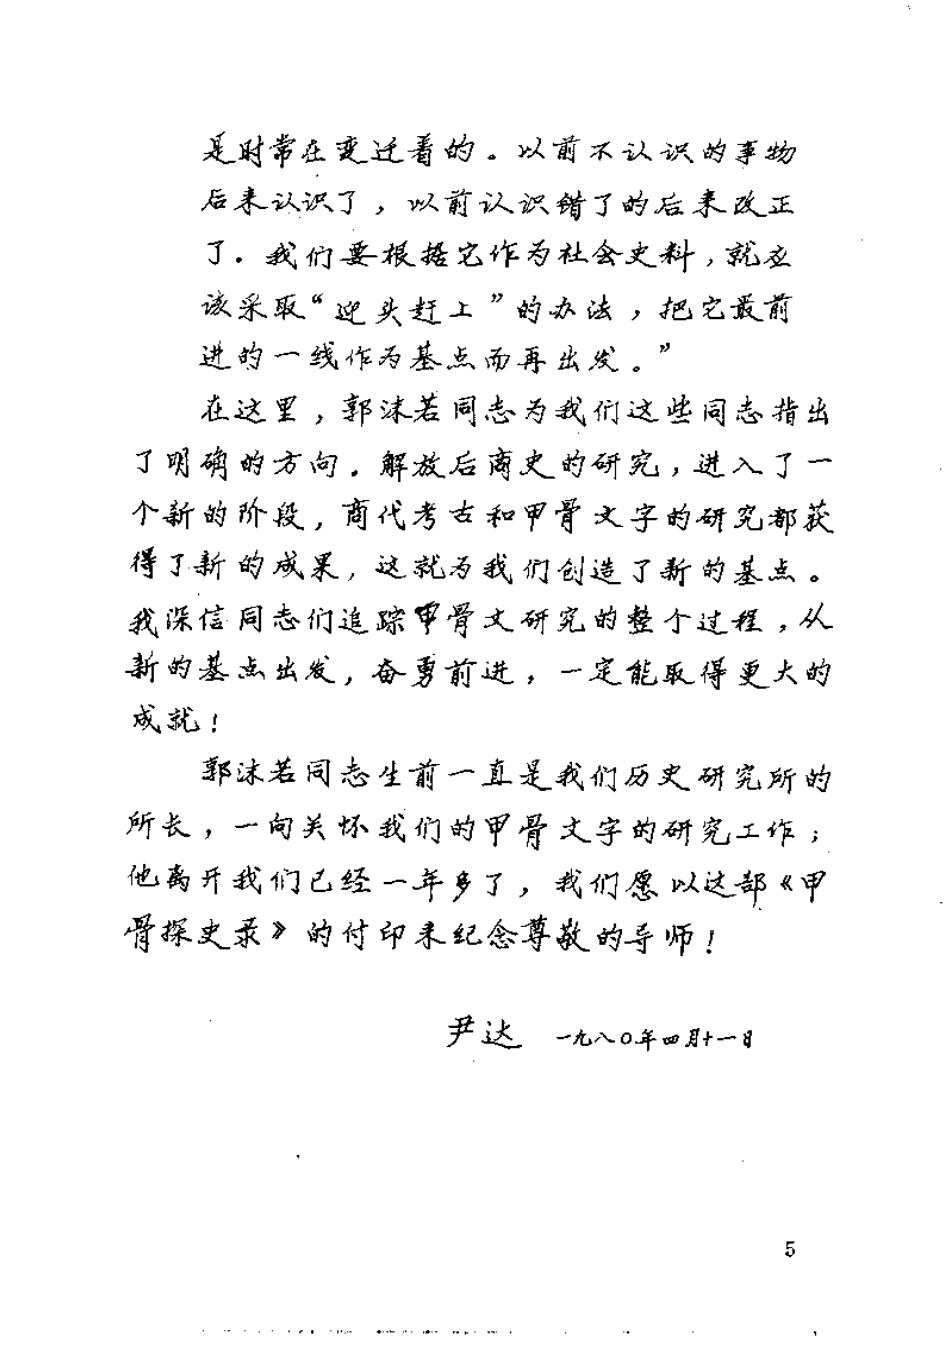 是时常在变迁着的。以前不认识的事物
后来认识了，以前认识错了的后来改正
了。我们要根据它作为社会史料，就应
该采取“迎头赶上”的办法，把它最前
进的一线作为基点而再出发。”
在这里，郭沫若同志为我们这些同志指出
了明确的方向。解放后商史的研究，进入了一
个新的阶段，商代考古和甲骨文字的研究都获
得了新的成果，这就为我们创造了新的基点。
我深信同志们追踪甲骨文研究的整个过程，从
新的基点出发，奋勇前进，一定能取得更大的
成就！
郭沫若同志生前一直是我们历史研究所的
所长，一向关怀我们的甲骨文字的研究工作；
他离开我们已经一年多了，我们愿以这部《甲
骨探史录》的付印来纪念尊敬的导师！
尹达 一九八〇年四月十一日
5